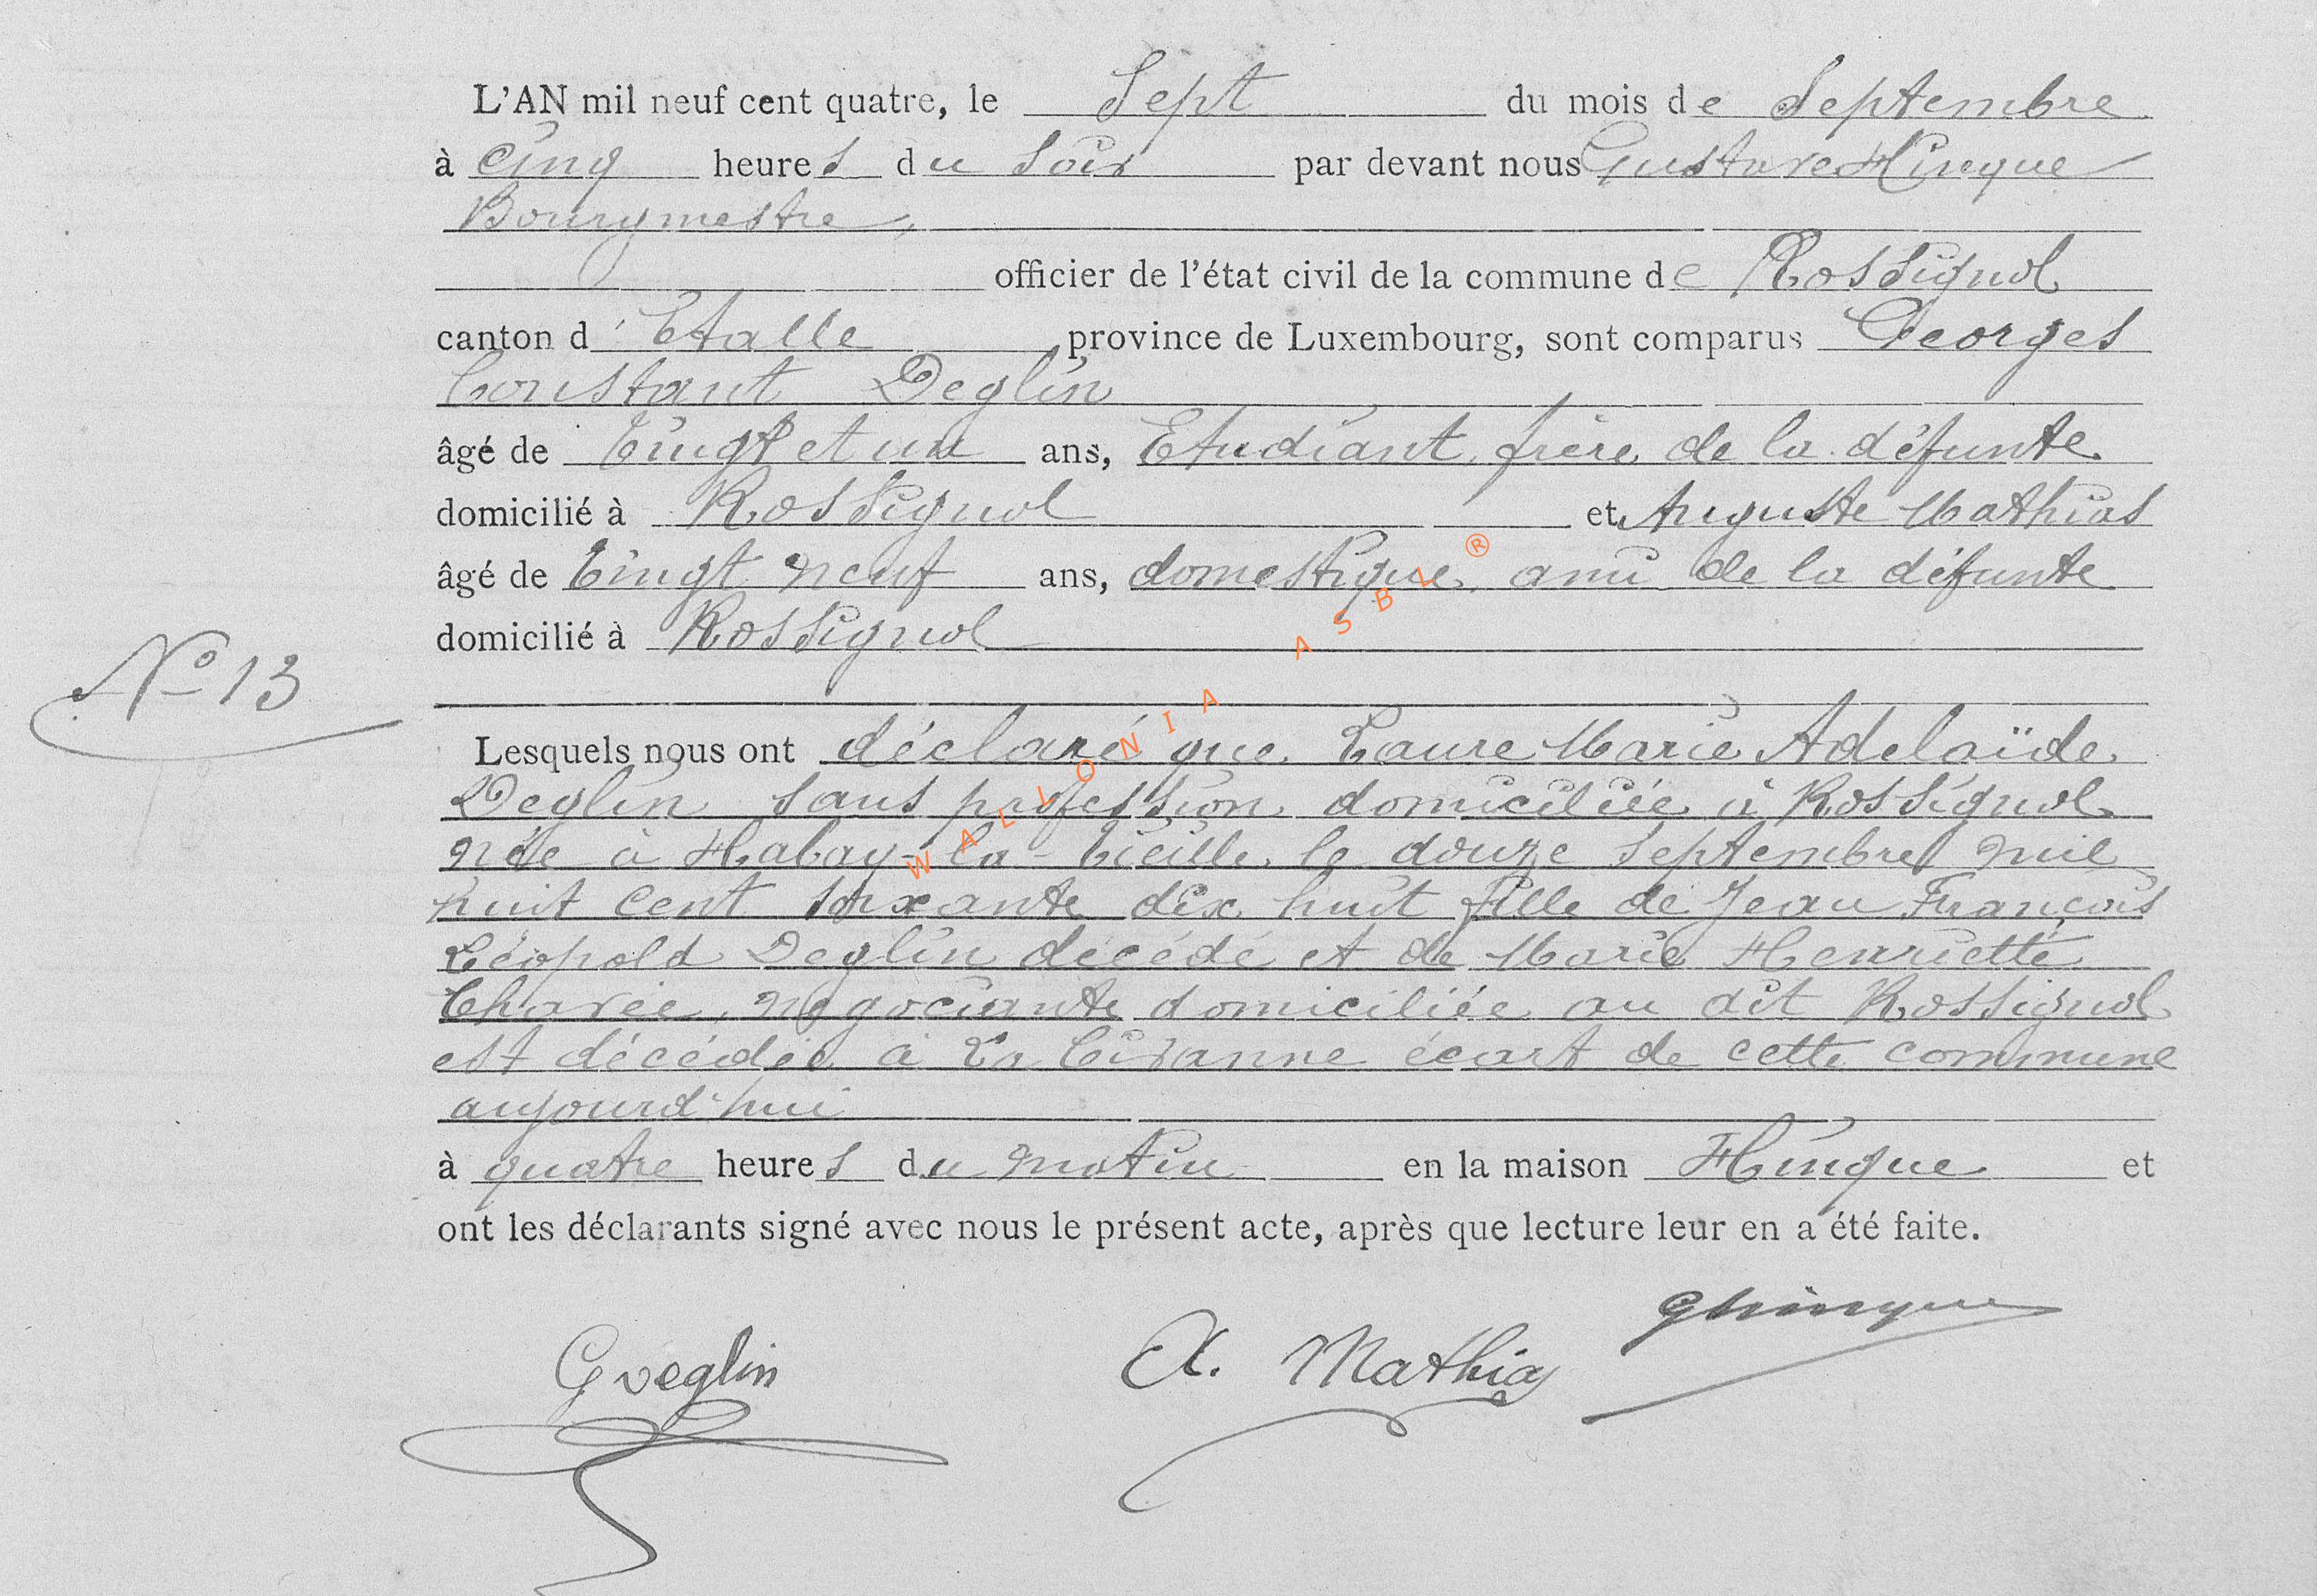 L'AN mil neuf cent quatre, le Sept du mois de Septembre
à cinq heures du soir par devant nous Gustave Hinque
Bourgmestre,
officier de l'état civil de la commune de Rossignol
canton d'Etalle province de Luxembourg, sont comparus Georges
Constant Deglin
âgé de Vingt et un ans, Etudiant, frère de la défunte
domicilié à Rossignol et Auguste Mathias
âgé de Vingt neuf ans, domestique, ami de la défunte
domicilié à Rossignol
N° 13
Lesquels nous ont déclaré que Laure Marie Adelaïde
Deglin sans profession domiciliée à Rossignol
née à Habay-la-Vieille, le douze Septembre mil
huit cent soixante dix huit fille de Jean François
Léopold Deglin décédé et de Marie Henriette
négociante domiciliée au dit Rossignol
est décédée à La Civanne écart de cette commune
aujourd'hui
à quatre heures du matin en la maison Hinque et
ont les déclarants signé avec nous le présent acte, après que lecture leur en a été faite.
GHinque
G Deglin A. Mathias
WALLONIA ASBL ®